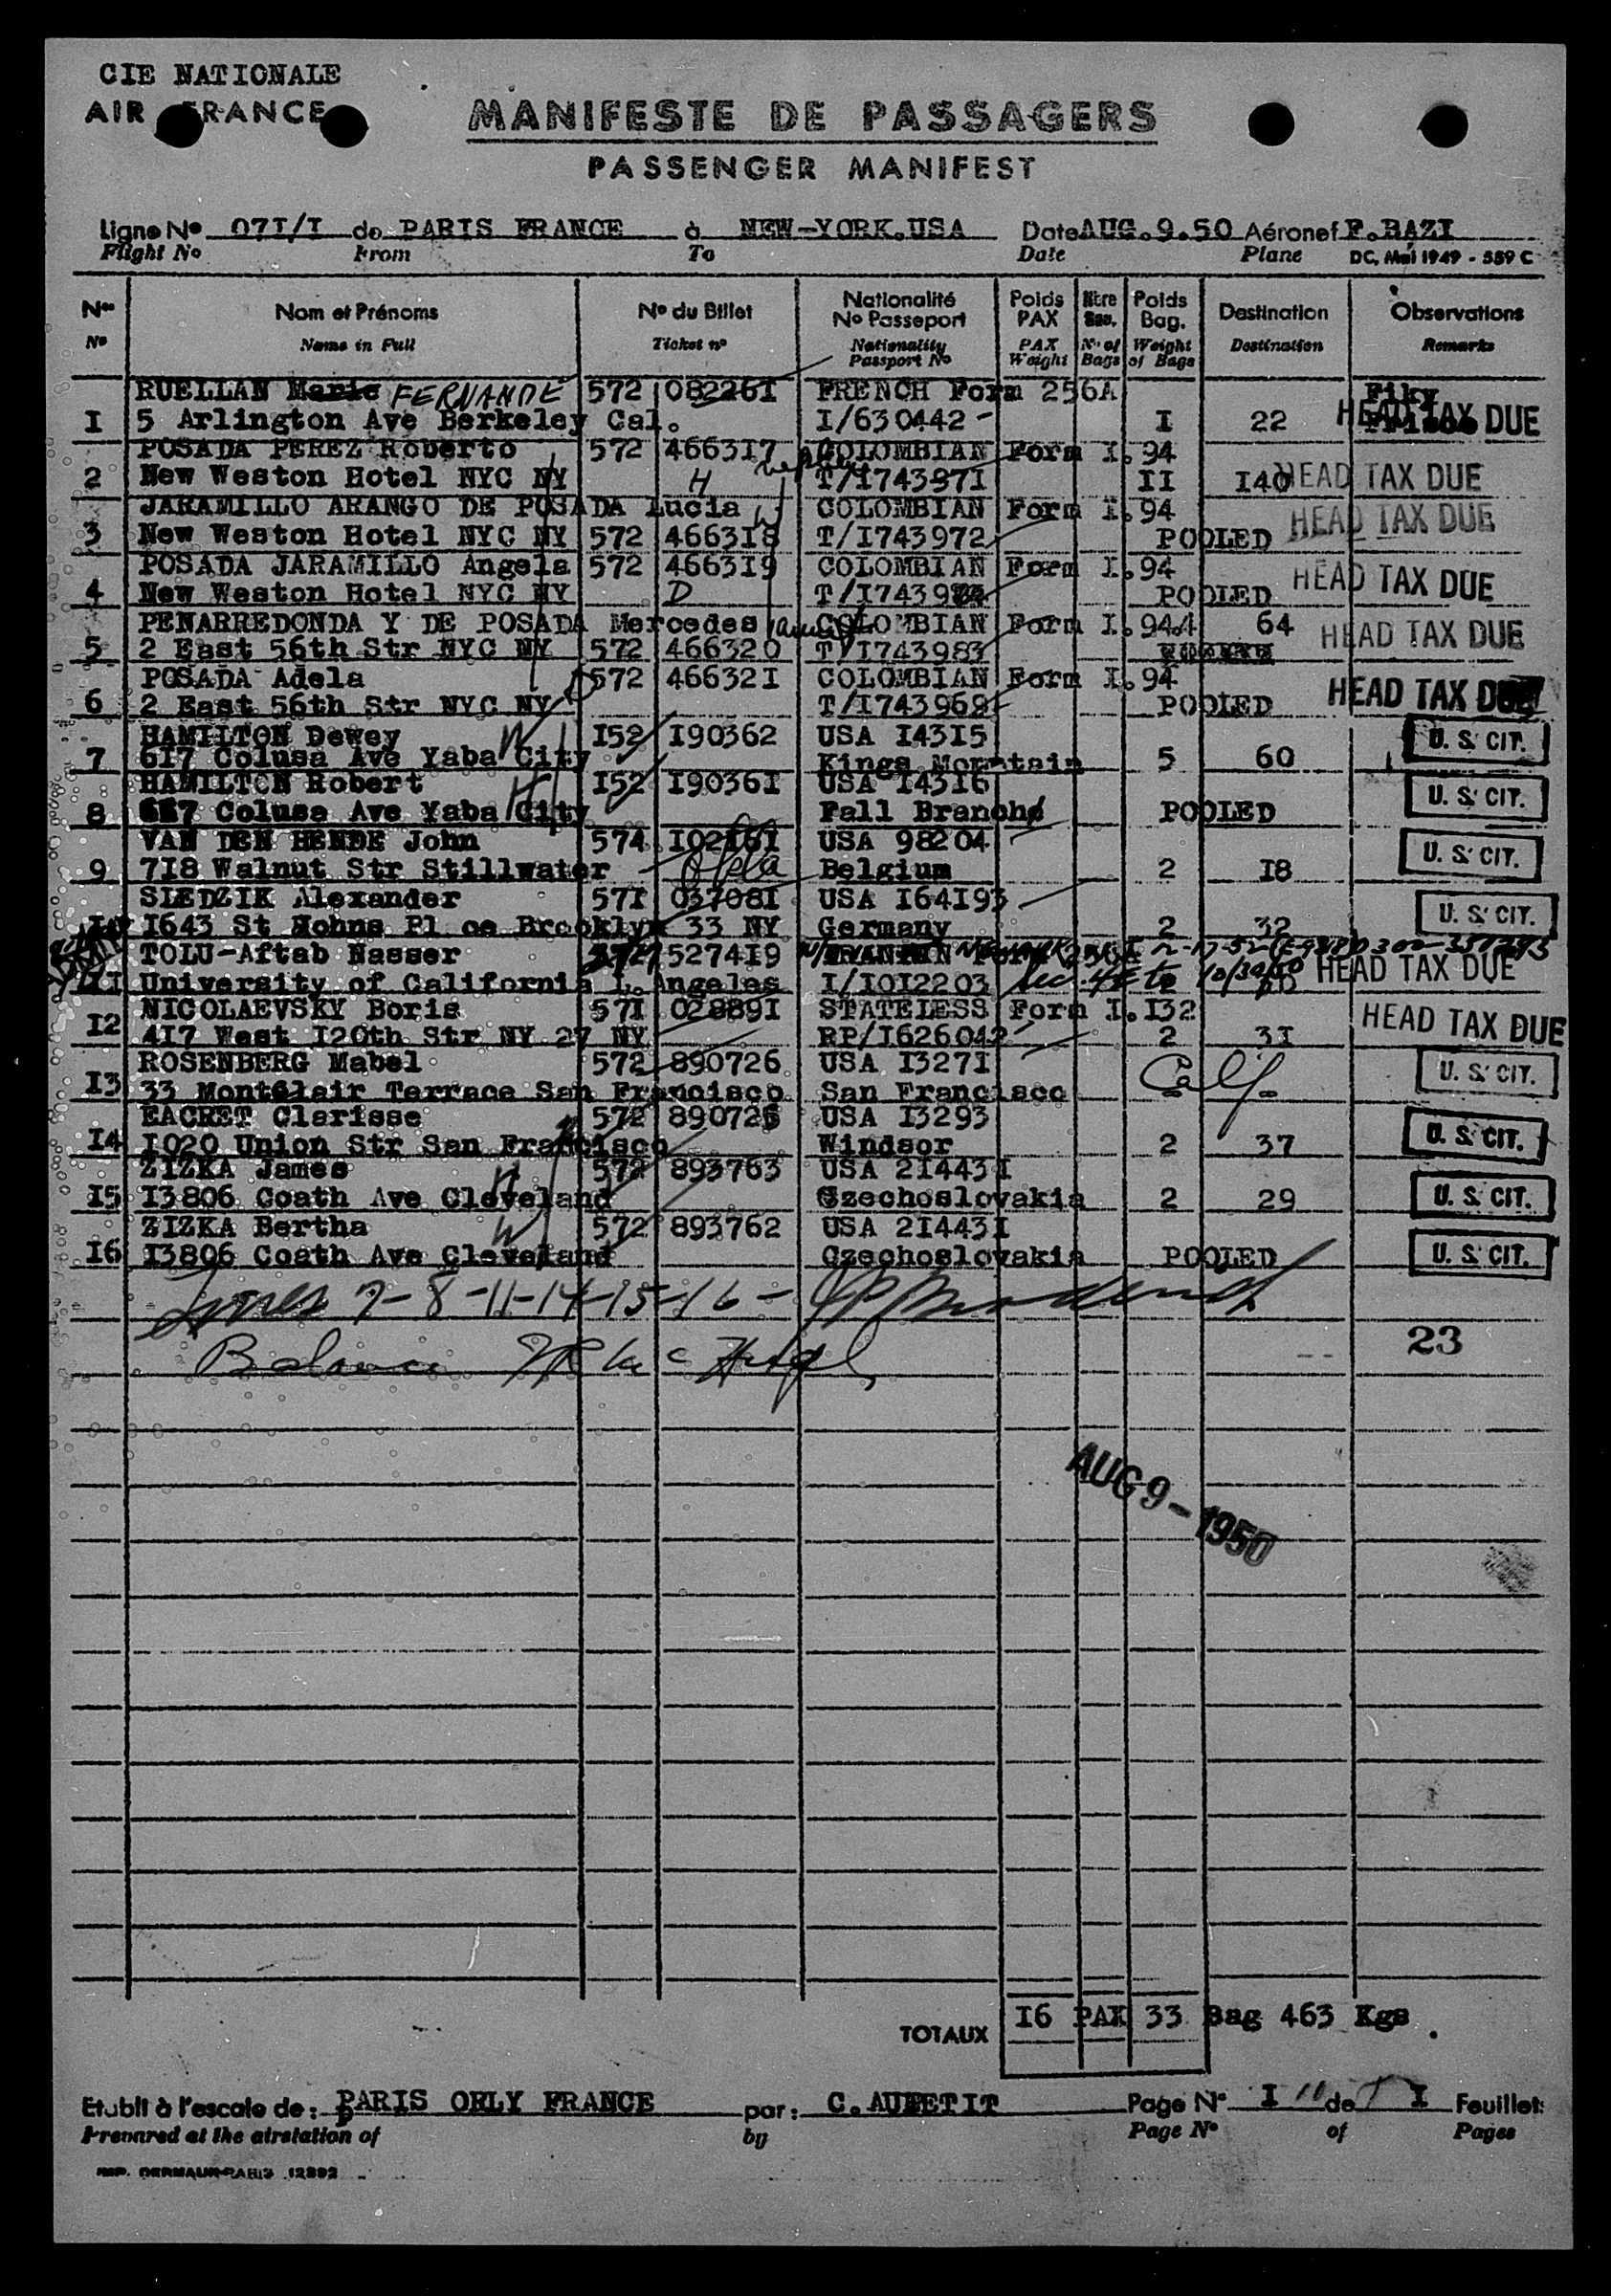 CIE NATIONALE
AIR FRANCE
MANIFESTE DE PASSAGERS
PASSENGER MANIFEST
Ligne No 07I/I de PARIS FRANCE à NEW-YORK.USA Date AUG.9.50 Aéronef F.BAZI
Flight No From To Date Plane DC. Mai 1949 - 559 C
Nos Nom et Prénoms No du Billet Nationalité No Passeport Poids PAX Nbre Bag. Poids Bag. Destination Observations
No Name in Full Ticket no Nationality Passport No PAX Weight No of Bags Weight of Bags Destination Remarks
RUELLAN Marie FERNANDE 572 08226I FRENCH Form 256A
I 5 Arlington Ave Berkeley Cal. I/630442 - I 22 HEAD TAX DUE
POSADA PEREZ Roberto 572 4663I7 COLOMBIAN Form I.94
2 New Weston Hotel NYC NY H T/I74397I II I40 HEAD TAX DUE
JARAMILLO ARANGO DE POSADA Lucia COLOMBIAN Form I.94
3 New Weston Hotel NYC NY 572 4663I8 T/I743972 POOLED HEAD TAX DUE
POSADA JARAMILLO Angela 572 4663I9 COLOMBIAN Form I.94
4 New Weston Hotel NYC NY D T/I7439 POOLED HEAD TAX DUE
PENARREDONDA Y DE POSADA Mercedes COLOMBIAN Form I.94 4 64 HEAD TAX DUE
5 2 East 56th Str NYC NY 572 466320 T/I743983
POSADA Adela 572 46632I COLOMBIAN Form I.94
6 2 East 56th Str NYC NY T/I743969 POOLED HEAD TAX DUE
HAMILTON Dewey I52 I90362 USA I43I5
7 6I7 Colusa Ave Yaba City Kings Mountain 5 60 U. S. CIT.
HAMILTON Robert I52 I9036I USA I43I6
8 6I7 Colusa Ave Yaba City Fall Branch POOLED U. S. CIT.
VAN DEN HENDE John 574 I02I6I USA 98204
9 7I8 Walnut Str Stillwater Belgium 2 I8 U. S. CIT.
SIEDZIK Alexander 57I 03708I USA I64I93
I0 I643 St Hohns Pl ce Brooklyn 33 NY Germany 2 32 U. S. CIT.
TOLU-Aftab Nasser 527419 IRANIAN Form 256
II University of California L. Angeles I/I0I2203 HEAD TAX DUE
NICOLAEVSKY Boris 57I 02889I STATELESS Form I.I32
I2 4I7 West I20th Str NY 27 NY RP/I626042 2 3I HEAD TAX DUE
ROSENBERG Mabel 572 890726 USA I327I
I3 33 Montclair Terrace San Francisco San Francisco Calf. U. S. CIT.
EACRET Clarisse 572 890725 USA I3293
I4 I020 Union Str San Francisco Windsor 2 37 U. S. CIT.
ZIZKA James 572 893763 USA 2I443I
I5 I3806 Coath Ave Cleveland Czechoslovakia 2 29 U. S. CIT.
ZIZKA Bertha 572 893762 USA 2I443I
I6 I3806 Coath Ave Cleveland Czechoslovakia POOLED U. S. CIT.
Lines 7-8-11-14-15-16-
Balance
23
AUG 9 - 1950
TOTAUX I6 PAX 33 Bag 463 Kgs .
Etabli à l'escale de: PARIS ORLY FRANCE par: C.AUBETIT Page No I de I Feuillets
Prepared at the airstation of by Page No of Pages
IMP. DERMAUR-PARIS 12892